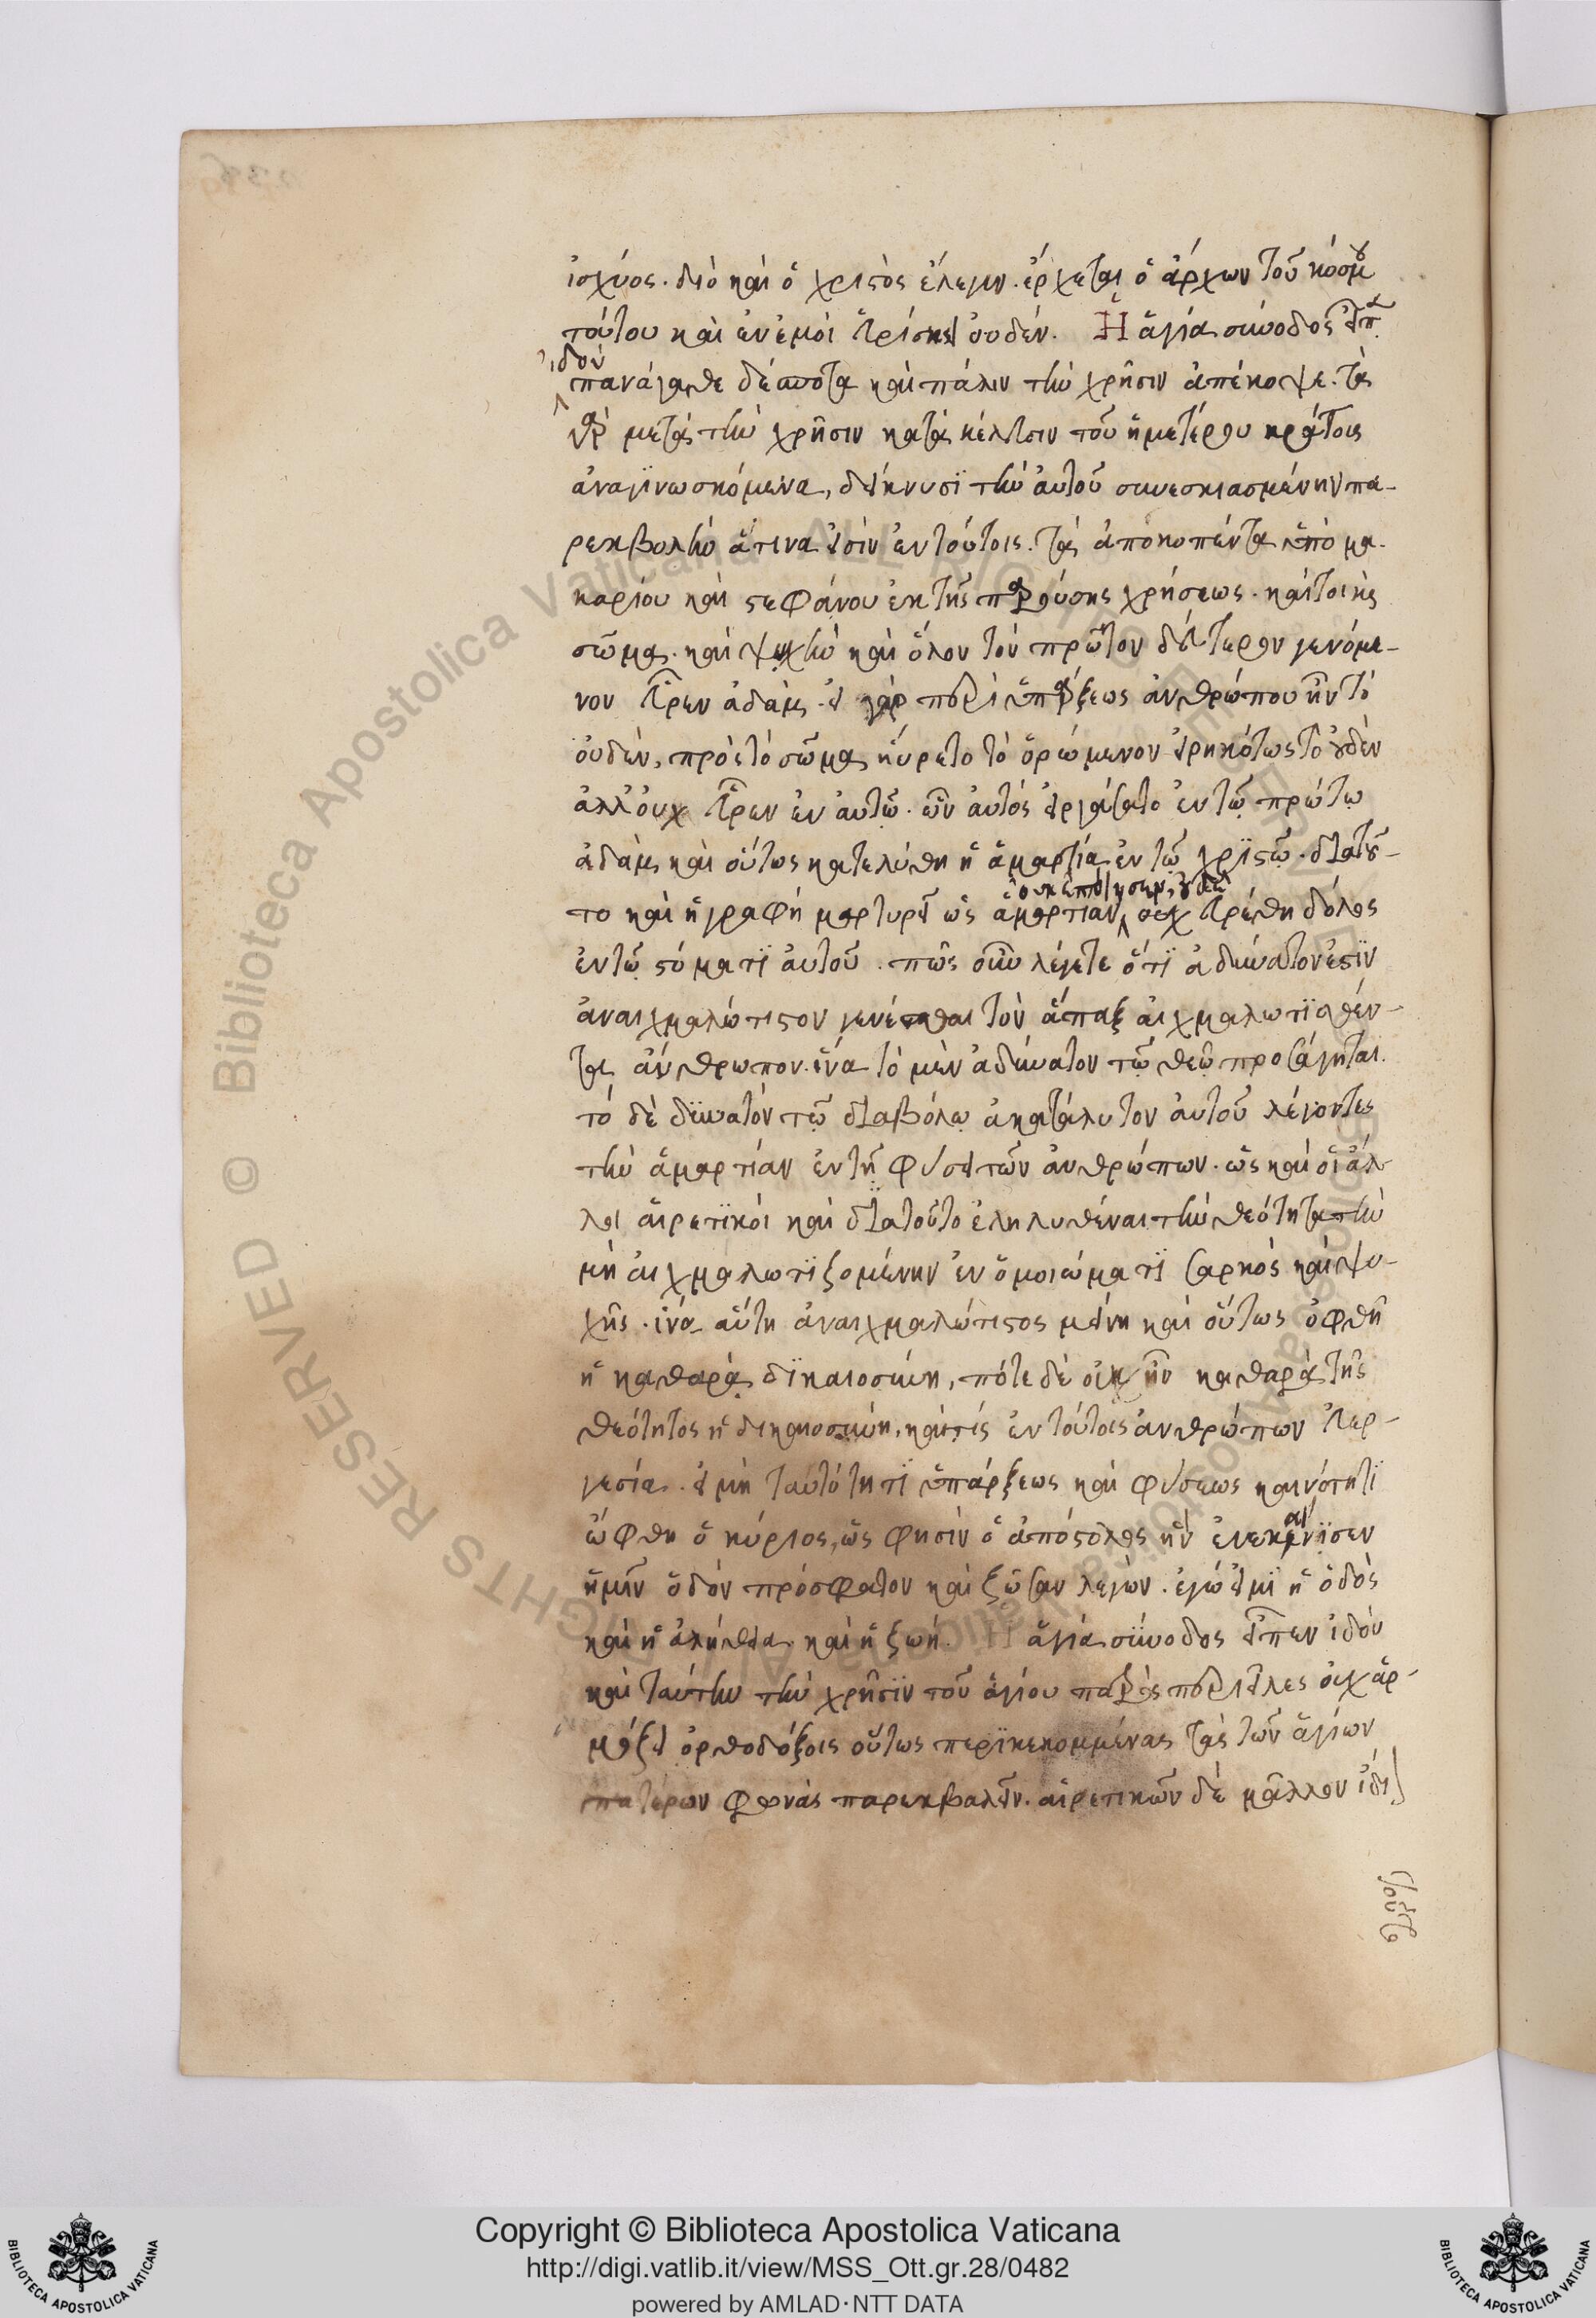 ἰσχύος. διὸ καὶ ὁ χριστὸς ἔλεγεν. ἔρχεται ὁ ἄρχων τοῦ κόσμου
τούτου καὶ ἐν ἐμοὶ εὑρίσκει οὐδέν. Ἡ ἁγία σύνοδος εἶπ
ἰδοὺ
πανάγαθε δέσποτα καὶ πάλιν τὴν χρῆσιν ἀπέκοψε. τὰ
γὰρ μετὰ τὴν χρῆσιν κατὰ κέλευσιν τοῦ ἡμετέρου κράτους
ἀναγινωσκόμενα, δείκνυσι τὴν αὐτοῦ συνεσκιασμένην πα-
ρεκβολὴν ἅτινα εἰσὶν ἐν τούτοις. τὰ ἀποκοπέντα ὑπὸ μα-
καρίου καὶ στεφάνου ἐκ τῆς παρούσης χρήσεως. καίτοι
σῶμα. καὶ ψυχὴν καὶ ὅλον τὸν πρῶτον δεύτερον γενόμε-
νον εὗρεν ἀδάμ. εἰ γὰρ περὶ ὑπάρξεως ἀνθρώπου ἦν τὸ
οὐδέν, πρὸς τὸ σῶμα ηὕρετο τὸ ὁρώμενον εἰρηκότως τὸ οὐδὲν
ἀλλ' οὐχ εὗρεν ἐν αὐτῷ. ὧν αὐτὸς εἰργάσατο ἐν τῷ πρώτῳ
ἀδάμ, καὶ οὕτως κατελύθη ἡ ἁμαρτία ἐν τῷ χριστῷ. διὰ τοῦ-
οὐκ ἐποίησεν, οὐδὲ
το καὶ ἡ γραφὴ μαρτυρεῖ ὡς ἁμαρτίαν οὐχ εὑρέθη δόλος
ἐν τῷ στόματι αὐτοῦ. πῶς οὖν λέγετε ὅτι ἀδύνατον ἐστὶν
ἀναιχμαλώτιστον γενέσθαι τὸν ἅπαξ αἰχμαλωτισθέν-
τα ἄνθρωπον. ἵνα τὸ μὲν ἀδύνατον τῷ θεῷ προσάγηται.
τὸ δὲ δυνατὸν τῷ διαβόλῳ ἀκατάλυτον αὐτοῦ λέγοντες
τὴν ἁμαρτίαν ἐν τῇ φύσει τῶν ἀνθρώπων. ὡς καὶ οἱ ἄλ-
λοι αἱρετικοὶ καὶ διὰ τοῦτο ἐληλυθέναι τὴν θεότητα τὴν
μὴ αἰχμαλωτιζομένην ἐν ὁμοιώματι σαρκὸς καὶ ψυ-
χῆς. ἵνα αὕτη ἀναιχμαλώτιστος μείνῃ καὶ οὕτως ὀφθῇ
ἡ καθαρὰ δικαιοσύνη, πότε δὲ οὐκ ἦν καθαρὰ τῆς
θεότητος ἡ δικαιοσύνη, καὶ τίς ἐν τούτοις ἀνθρώπων εὐερ-
γεσία. εἰ μὴ ταυτότητι ὑπάρξεως καὶ φύσεως καινότητι
ὤφθη ὁ κύριος, ὥς φησιν ὁ ἀπόστολος ἣν ἐνεκαίνισεν
ἡμῖν ὁδὸν πρόσφατον καὶ ζῶσαν λέγων. ἐγὼ εἰμὶ ἡ ὁδὸς
καὶ ἡ ἀλήθεια καὶ ἡ ζωή. Ἡ ἁγία σύνοδος εἶπεν ἰδοὺ
καὶ ταύτην τὴν χρῆσιν τοῦ ἁγίου πατρὸς περιεῖλες οὐχ ἁρ-
μόζει ὀρθοδόξοις οὕτως περικεκομμένας τὰς τῶν ἁγίων
πατέρων φωνὰς παρεκβαλεῖν. αἱρετικῶν δὲ μᾶλλον ἴδι
τοῦτο
Copyright © Biblioteca Apostolica Vaticana
http://digi.vatlib.it/view/MSS_Ott.gr.28/0482
powered by AMLAD·NTT DATA
BIBLIOTECA APOSTOLICA VATICANA
BIBLIOTECA APOSTOLICA VATICANA